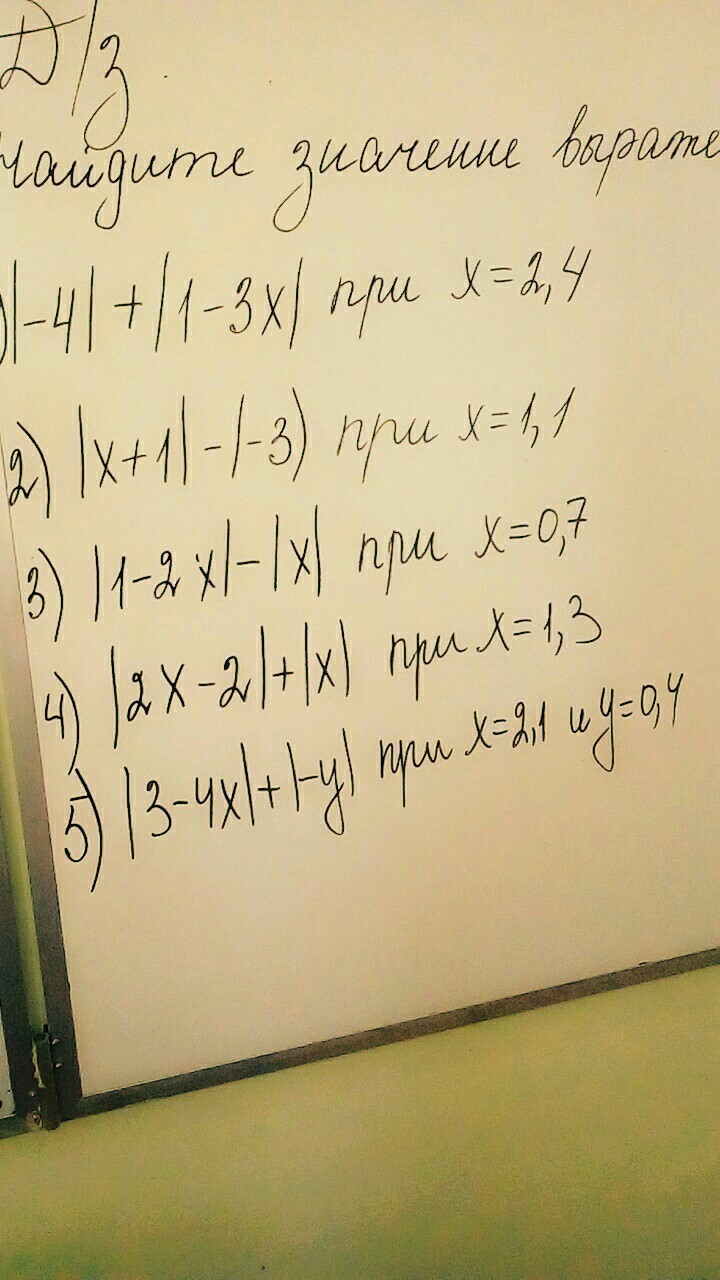 Д/з
Найдите значение выраже
) |-4| + |1-3x| при x=2,4
2) |x+1| - |-3) при x=1,1
3) |1-2x| - |x| при x=0,7
4) |2x-2| + |x| при x=1,3
5) |3-4x| + |-y| при x=2,1 и y=0,4